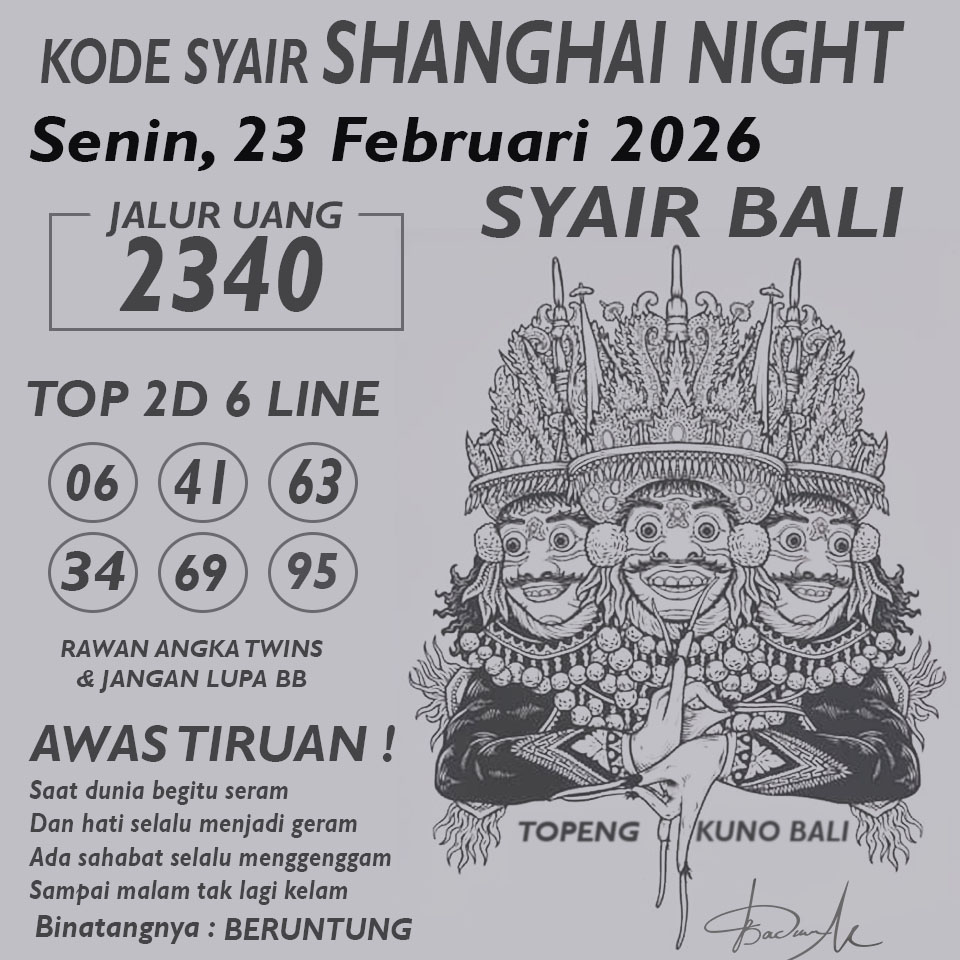 KODE SYAIR SHANGHAI NIGHT
Senin, 23 Februari 2026
SYAIR BALI
JALUR UANG
2340
TOP 2D 6 LINE
06 41 63
34 69 95
RAWAN ANGKA TWINS
& JANGAN LUPA BB
AWAS TIRUAN !
Saat dunia begitu seram
Dan hati selalu menjadi geram
Ada sahabat selalu menggenggam
Sampai malam tak lagi kelam
Binatangnya : BERUNTUNG
TOPENG KUNO BALI